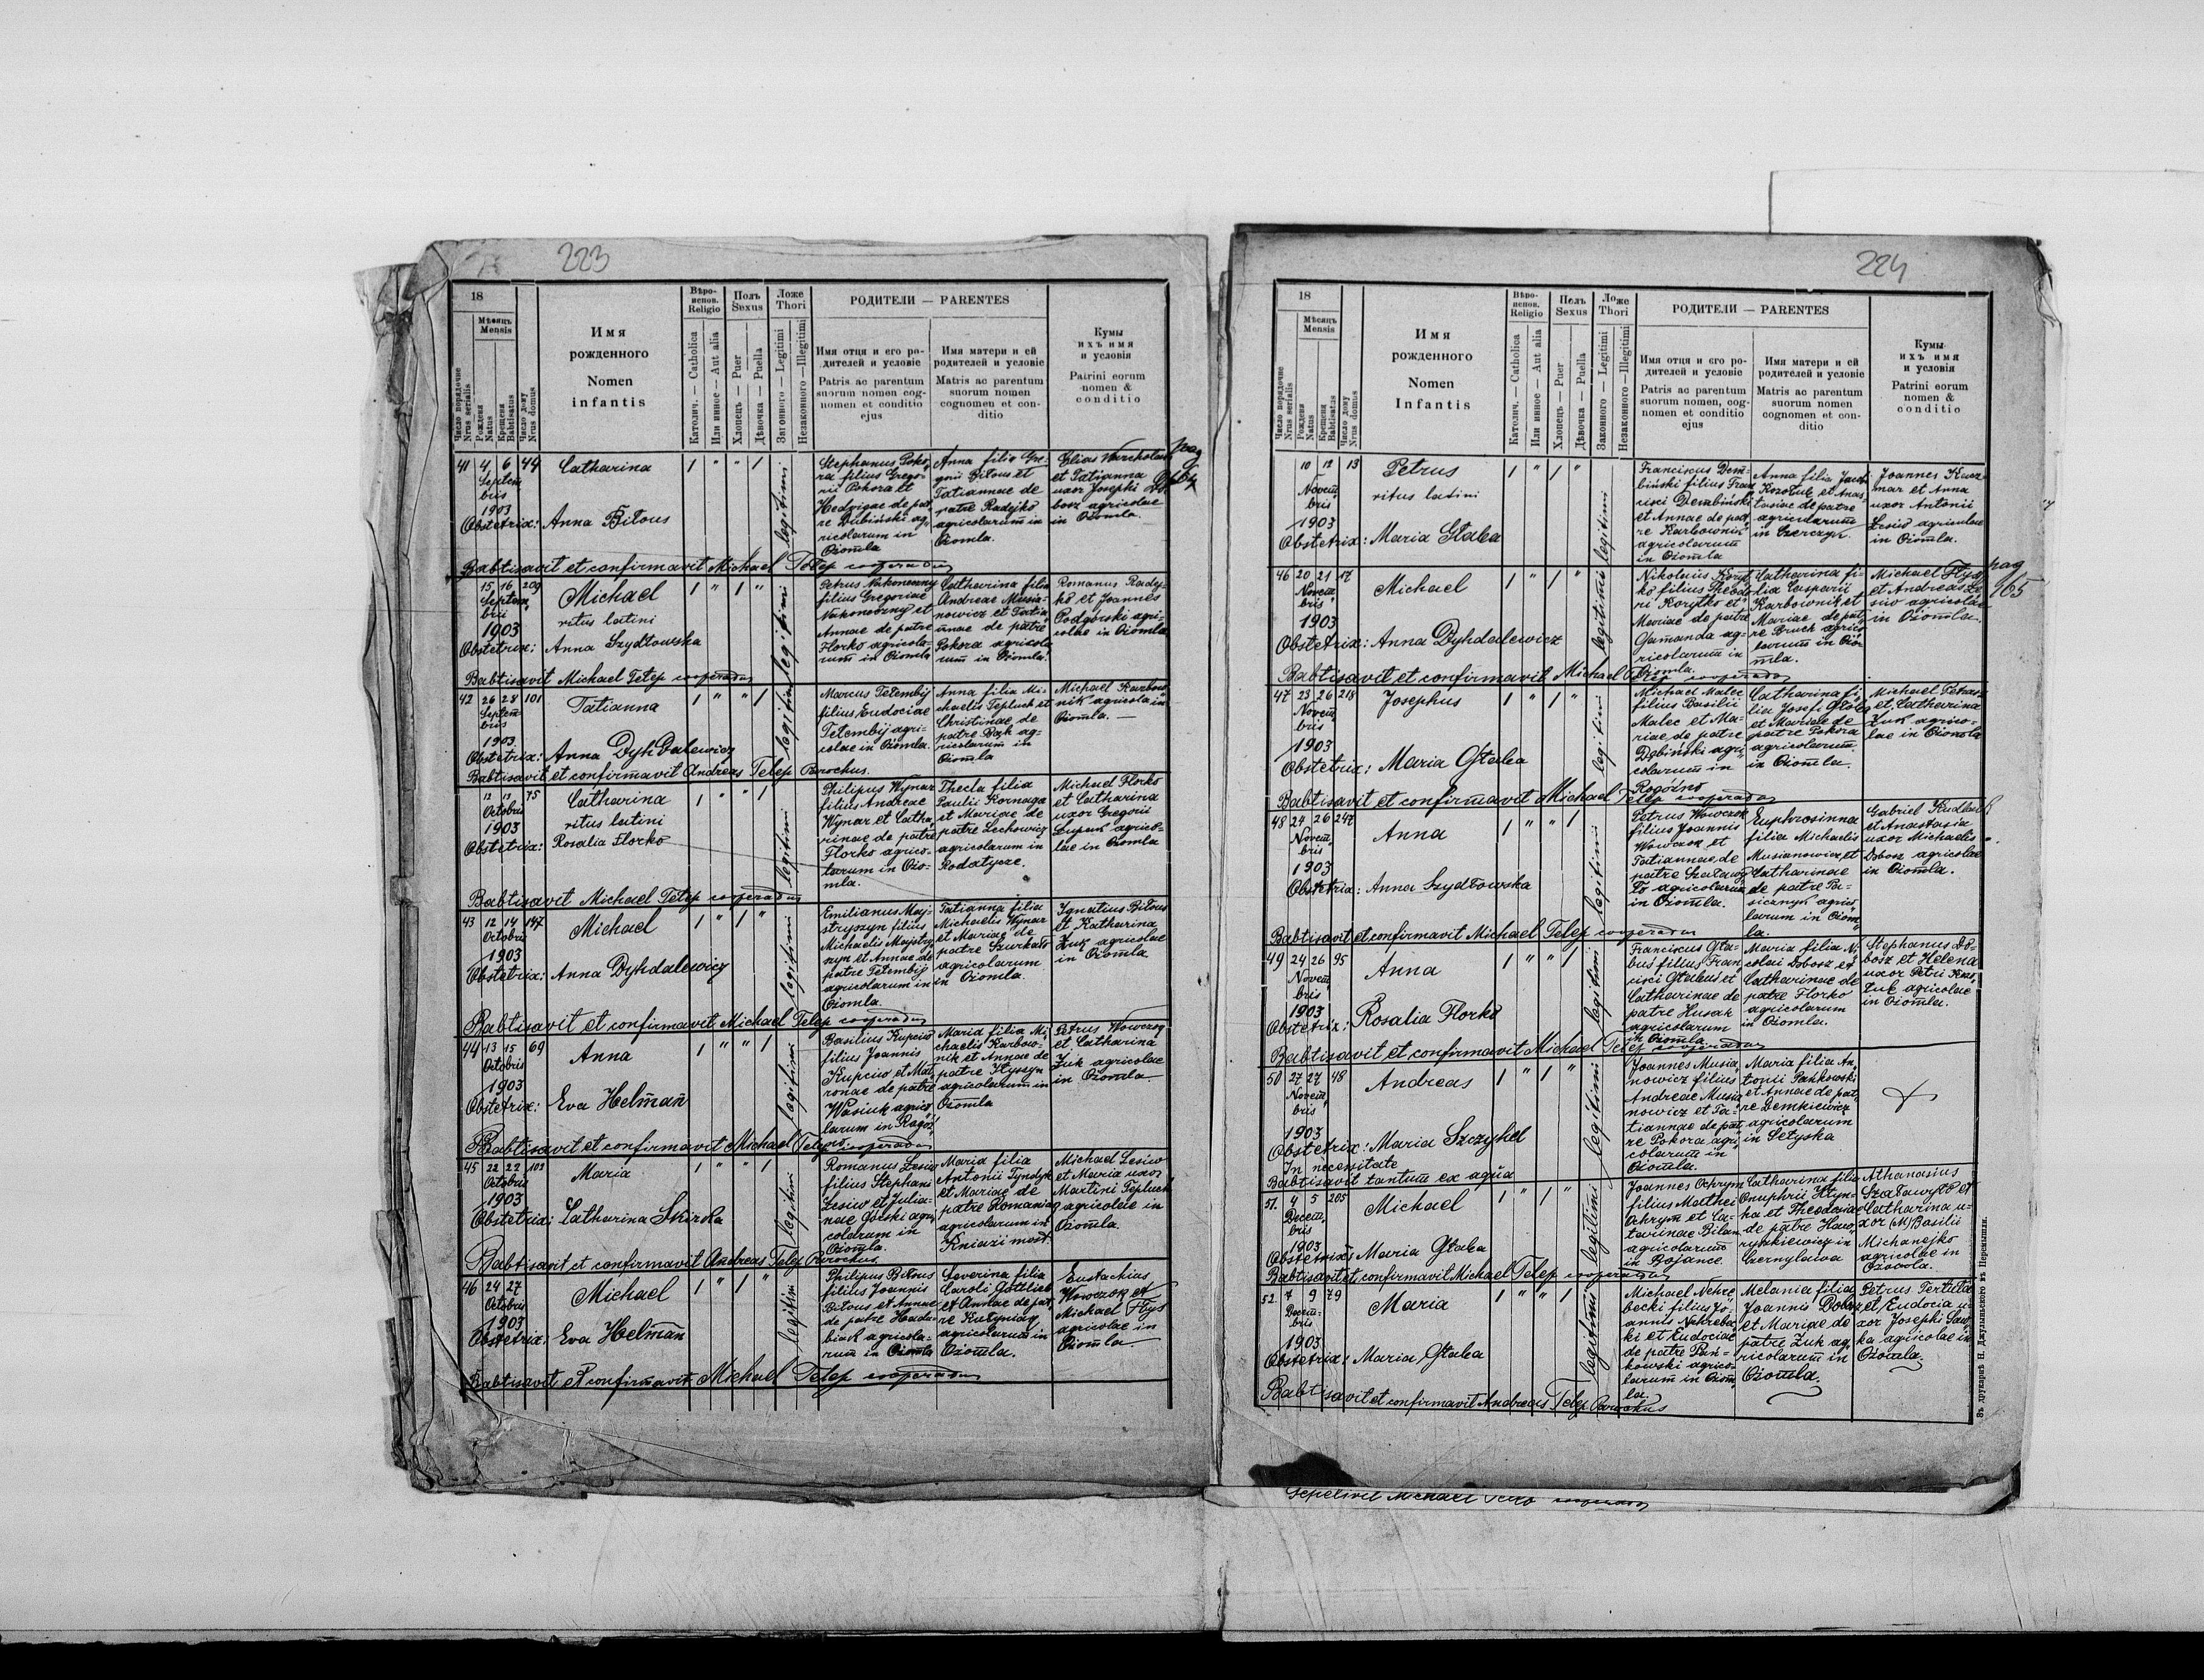 223
18
Мѣсяць
Mensis
Число порядочне
Nrus serialis
Рождена
Natus
Крещена
Babtisatus
Число дому
Nrus domus
Имя
рожденного
Nomen
infantis
Вѣро-
испов.
Religio
Католич. — Catholica
Или инное — Aut alia
Полъ
Sexus
Хлопецъ — Puer
Дѣвочка — Puella
Ложе
Thori
Законного — Legitimi
Незаконного — Illegitimi
РОДИТЕЛИ — PARENTES
Имя отця и его ро-
дителей и условіе
Patris ac parentum
suorum nomen cog-
nomen et conditio
ejus
Имя матери и ей
родителей и условіе
Matris ac parentum
suorum nomen
cognomen et con-
ditio
Кумы
ихъ имя
и условія
Patrini eorum
nomen &
conditio
41 4 6 44 Catharina 1 " " 1 legitimi
Septem
bris
1903
Obstetrix: Anna Biłous
Stephanus Poko-
ra filius Grego-
rii Pokora et
Hedvigae de pat-
re Dubiński ag-
ricolarum in
Ożomla
Anna filia Gre-
gorii Biłous et
Tatiannae de
patre Radejko
agricolarum in
Ożomla.
Elias
et Tatianna
uxor Josephi
bosz agricolae
in Ożomla.
pag
Babtisavit et confirmavit Michael Telep cooperador
15 16 209 Michael 1 " 1 " legitimi
Septem
bris
1903
ritus latini
Obstetrix: Anna Szydłowska
Petrus Nakoneczny
filius Gregoriae
Nakoneczny et
Annae de patre
Florko agricola-
rum in Ożomla
Catharina filia
Andreae Musia-
nowicz et Tatia
nnae de patre
Pokora agricola
rum in Ożomla.
Romanus Rady-
ko et Joannes
Podgorski agri-
colae in Ożomla
Babtisavit Michael Telep cooperador
42 26 28 101 Tatianna 1 " " 1 legitimi
Septem
bris
1903.
Obstetrix: Anna Dyhdalewicz
Marcus Tetembij
filius Eudociae
Tetembij agri-
colae in Ożomla.
Anna filia Mi-
chaelis Tepluch et
Christinae de
patre Bzh ag-
ricolarum in
Ożomla
Michael Karbow
nik agricola in
Ożomla. —
Babtisavit et confirmavit Andreas Telep Parochus.
12 13 75 Catharina 1 " " 1 legitimi
Octobris
1903
ritus latini
Obstetrix: Rosalia Florko
Philipus Wynar
filius Andreae
Wynar et Catha
rinae de patre
Florko agrico-
larum in Ożo-
mla.
Thecla filia
Paulii Kornaga
et Mariae de
patre Lechowicz
agricolarum in
Rodatycze.
Michael Florko
et Catharina
uxor Gregorii
Łupak agrico-
lae in Ożomla
Babtisavit Michael Telep cooperador
43 12 14 147 Michael 1 " 1 " legitimi
Octobris
1903
Obstetrix: Anna Dyhdalewicz
Emilianus May-
stryszyn filius
Michaelis Majstry
szyn et Annae de
patre Tetembij
agricolarum in
Ożomla.
Tatianna filia
Michaelis Wynar
et Mariae de
patre Szurkało
agricolarum
in Ożomla.
Ignatius Biłous
et Katharina
Żuk agricolae
in Ożomla
Babtisavit et confirmavit Michael Telep cooperador
44 13 15 69 Anna 1 " " 1 legitimi
Octobris
1903
Obstetrix: Eva Helman
Basilius Kupciw
filius Joannis
Kupciw et Mat
ronae de patre
Wasiuk agrico
larum in Rogoż
no.
Maria filia Mi
chaelis Karbow-
nik et Annae de
patre Hyssyn
agricolarum in
Ożomla
Petrus Wowczog
et Catharina
Żuk agricolae
in Ożomla
Babtisavit et confirmavit Michael Telep cooperador
45 22 22 102 Maria 1 " " 1 legitimi
Octobris
1903
Obstetrix: Catharina Skirka
Romanus Lesiw
filius Stephani
Lesiw et Julia-
nae Górski agri
colarum in
Ożomla.
Maria filia
Antonii Tyndyk
et Mariae de
patre Romaniog
agricolarum in
Kniazi most.
Michael Lesiw
et Maria uxor
Martini Tepluch
agricolae in
Ożomla.
Babtisavit et confirmavit Andreas Telep Parochus.
46 24 27 Michael 1 " 1 " legitimi
Octobris
1903
Obstetrix: Eva Helman
Philipus Biłous
filius Joannis
Biłous et Annae
de patre Hada-
biak agricola-
rum in Ożomla
Severina filia
Caroli Gottlieb
et Annae de pat
re Kużyniag
agricolarum in
Ożomla.
Eustachius
Wowczok et
Michael Flys
agricolae in
Ożomla.
Babtisavit et confirmavit Michael Telep cooperador
224
18
Мѣсяць
Mensis
Число порядочне
Nrus serialis
Рождена
Natus
Крещена
Babtisatus
Число дому
Nrus domus
Имя
рожденного
Nomen
Infantis
Вѣро-
испов.
Religio
Католич. — Catholica
Или инное — Aut alia
Полъ
Sexus
Хлопецъ — Puer
Дѣвочка — Puella
Ложе
Thori
Законного — Legitimi
Незаконного — Illegitimi
РОДИТЕЛИ — PARENTES
Имя отця и єго ро-
дителей и условіе
Patris ac parentum
suorum nomen, cog-
nomen et conditio
ejus
Имя матери и ей
родителей и условіе
Matris ac parentum
suorum nomen
cognomen et con-
ditio
Кумы
ихъ имя
и условія
Patrini eorum
nomen &
conditio
10 12 13 Petrus 1 " 1 " legitimi
Novem
bris
1903
ritus latini
Obstetrix: Maria Głaba
Franciscus Dem-
biński filius Fran
cisci Dembiński
et Annae de pat
re Karbownik
agricolarum
in Ożomla
Anna filia Jacobi
Korotuk et Anas-
tasiae de patre
agricolarum
in Czerczyk.
Joannes Kucz
mar et Anna
uxor Antonii
Lesiw agricolae
in Ożomla.
46 20 21 17 Michael 1 " 1 " legitimi
Novem
bris
1903
Obstetrix: Anna Dyhdalewicz
Nikolaus Koryt
ko filius Theodo
ri Korytko et
Mariae de patre
Gamanda ag-
ricolarum in
Ożomla.
Catharina fi-
lia Casparii
Karbownik et
Mariae de pat
re Bruch agrico
larum in Ożo-
mla.
Michael Flys
et Andreas Le
siw agricolae
in Ożomla.
pag
165
Babtisavit et confirmavit Michael Telep cooperador
47 23 26 218 Josephus 1 " 1 " legitimi
Novem
bris
1903
Obstetrix: Maria Głaba
Michael Malec
filius Basilii
Malec et Ma-
riae de patre
Dąbiński agri
colarum in
Rogóżno
Catharina fi-
lia Josefi
et Mariae de
patre Pokora
agricolarum
in Ożomla.
Michael Petrasz
et Catharina
Żuk agrico-
lae in Ożomla
Babtisavit et confirmavit Michael Telep cooperador
48 24 26 247 Anna 1 " " 1 legitimi
Novem
bris
1903
Obstetrix: Anna Szydłowska
Petrus Wowczok
filius Joannis
Wowczok et
Tatiannae de
patre Szaławy
ło agricolarum
in Ożomla.
Euphrosinna
filia Michaelis
Musianowicz et
Catharinae
de patre Pa-
sicznyk agrico
larum in Ożom
la.
Gabriel
et Anastasia
uxor Michaelis
Dobosz agricolae
in Ożomla.
Babtisavit et confirmavit Michael Telep cooperador
49 24 26 95 Anna 1 " " 1 legitimi
Novem
bris
1903
Obstetrix: Rosalia Florko
Franciscus Gła-
bus filius Fran
cisci Głabus et
Catharinae de
patre Husak
agricolarum
in Ożomla
Maria filia Ni
colai Dobosz et
Catharinae de
patre Florko
agricolarum
in Ożomla.
Stephanus Do-
bosz et Helena
uxor Petri
Żuk agricolae
in Ożomla.
Babtisavit et confirmavit Michael Telep cooperador
50 27 27 48 Andreas 1 " 1 " legitimi
Novem
bris
1903
Obstetrix: Maria Szczyhel
In necessitate
Babtisavit tantum ex aqua
Joannes Musia
nowicz filius
Andreae Musia
nowicz et Ta-
tiannae de pat
re Pokora agri
colarum in
Ożomla.
Maria filia An
tonii Pańkowski
et Annae de pat
re Demkiewicz
agricolarum
in Setyska
51. 4 5 205 Michael 1 " 1 " legitimi
Decem
bris
1903
Obstetrix: Maria Głaba
Joannes Ochrym
filius Matthei
Ochrym et Ca-
tarinae Bilan
agricolarum
in Bojance.
Catharina filia
Onuphrii Hryn-
ka et Theodosiae
de patre Haw
ryszkiewicz in
Czernylawa
Athanasius
Szaławyło et
Catharina u-
xor (M) Basilii
Michanejko
agricolae in
Ożomla.
Babtisavit et confirmavit Michael Telep cooperador
52. 7 9 79 Maria 1 " " 1 legitimi
Decem-
bris
1903
Obstetrix: Maria Głaba
Michael Nehre
becki filius Jo-
annis Nehrebec
ki et Eudociae
de patre Pań-
kowski agrico-
larum in Ożom
la.
Melania filia
Joannis Dobosz
et Mariae de
patre Żuk ag
ricolarum in
Ożomla.
Petrus Tertuta
et Eudocia u-
xor Josephi Saw
ka agricolae in
Ożomla
Babtisavit et confirmavit Andreas Telep Parochus
Зъ друкарнѣ Н. Джулыньского въ Перемышли.
Sepelivit Michael Telep cooperador